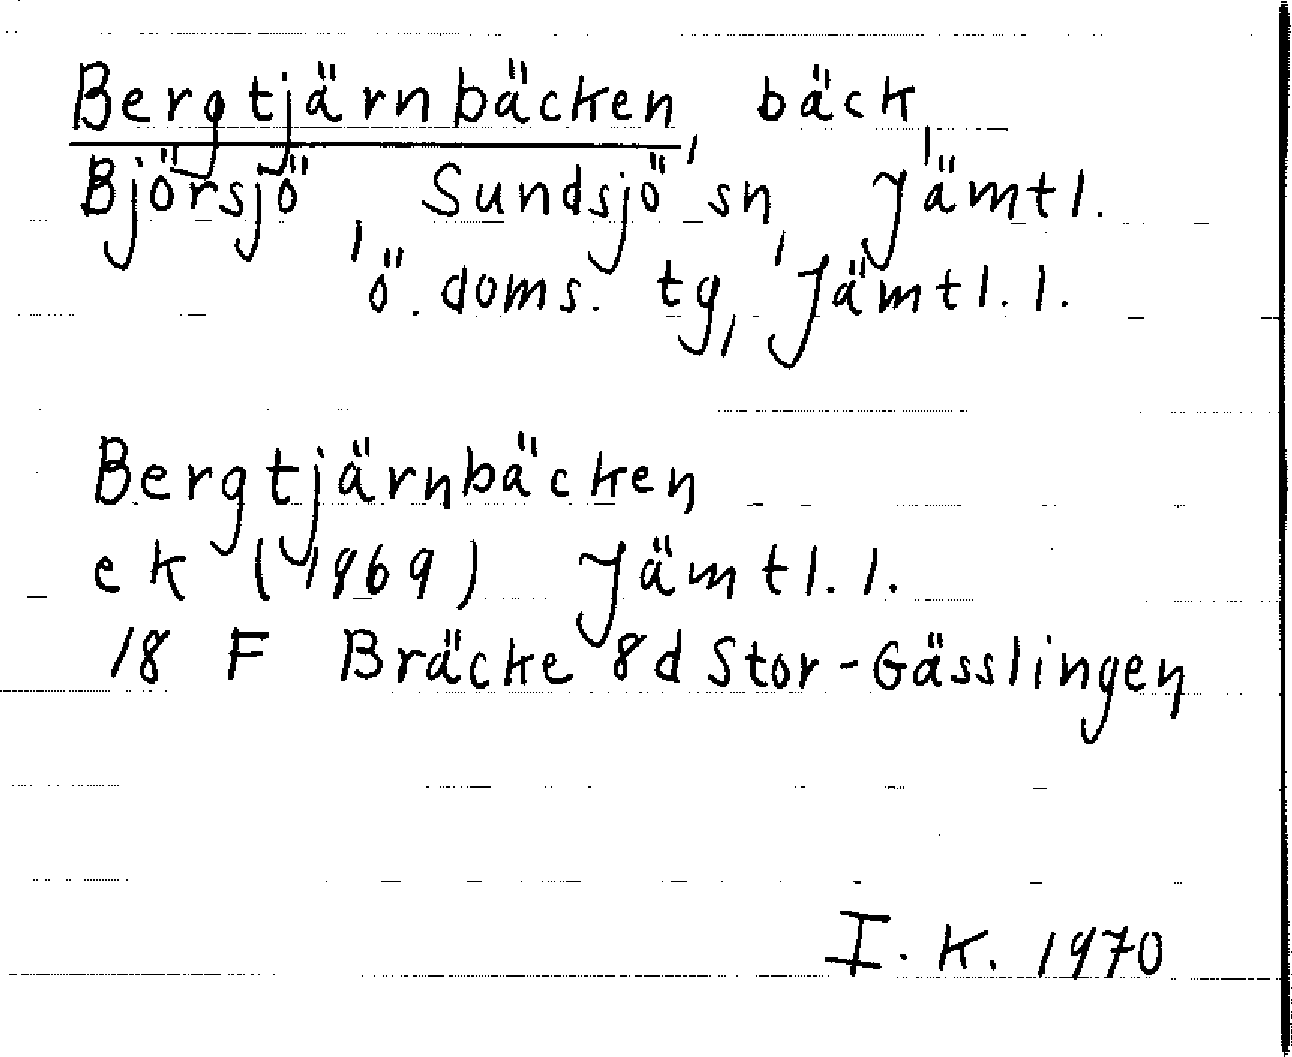 Bergtjärnbäcken, bäck,
Björsjö, Sundsjö sn, Jämtl.
ö. doms. tg, Jämtl. l.
Bergtjärnbäcken
ek (1969) Jämtl. l.
18 F Bräcke 8d Stor-Gässlingen
I. K. 1970